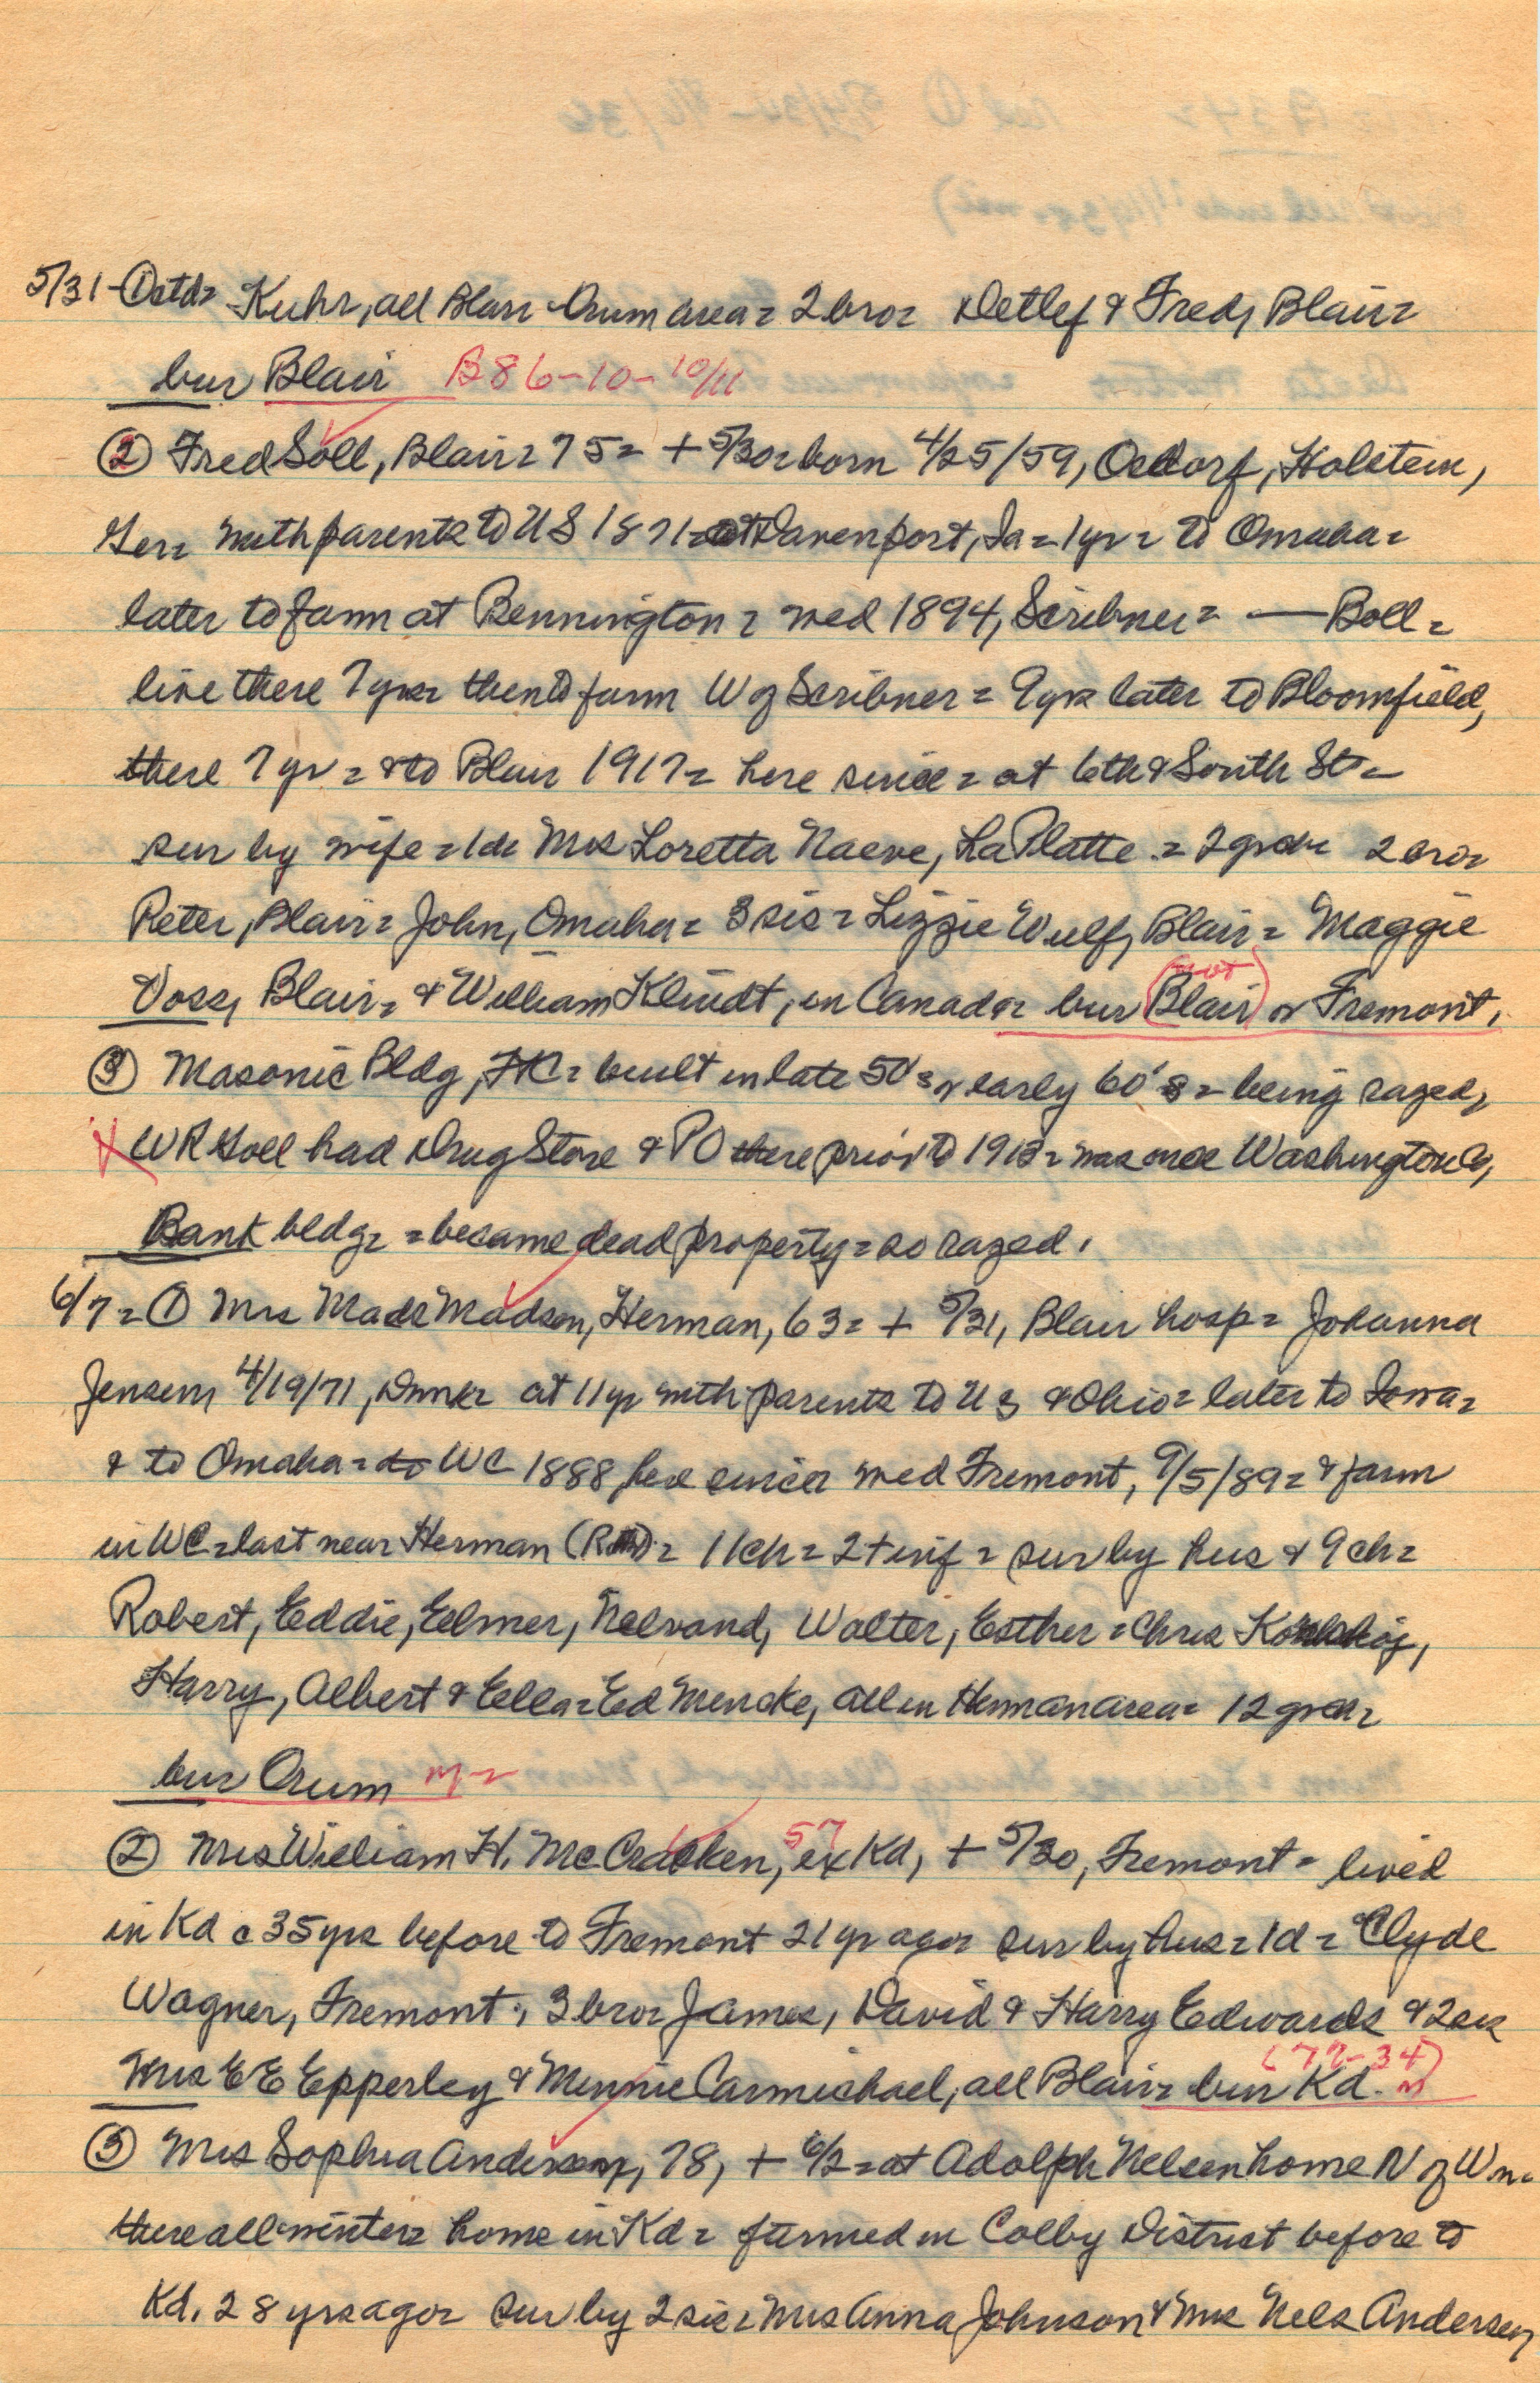 5/31 - ① ctd= Kuhr, all Blair-Orum area = 2 bro = Detlef & Fred, Blair =
bur Blair B86-10-10/11
② Fred Soll, Blair = 75 = + 5/30 = born 4/25/59, Holstein,
Ger = with parents to US 1871 = at Davenport, Ia = 1 yr = to Omaha =
later to farm at Bennington = wed 1894, Scribner = — Boll =
live there 7 yrs = then to farm W of Scribner = 9 yrs later to Bloomfield,
there 7 yr = & to Blair 1917 = here since = at 6th & South St =
sur by wife = 1 d = Mrs Loretta Naeve, LaPlatte = 2 grch = 2 bro =
Peter, Blair = John, Omaha = 3 sis = Lizzie Wulf, Blair = Maggie
Voss, Blair = & William Klindt, in Canada = bur (Blair) or Fremont.
not
③ Masonic Bldg, FC = built in late 50's or early 60's = being razed,
X WR Goll had Drug Store & PO there prior to 1913 = was once Washington Co,
Bank bldg = = became dead property = so razed.
6/7 = ① Mrs Mads Madsen, Herman, 63 = + 5/31, Blair hosp = Johanna
Jensen, 4/19/71, Dnmk = at 11 yr with parents to US & Ohio = later to Iowa =
& to Omaha = to WC 1888, here since = wed Fremont, 9/5/89 = & farm
in WC = last near Herman = 11 ch = 2 + inf = sur by hus & 9 ch =
Robert, Eddie, Elmer, Nelvand, Walter, Esther = Chris
Harry, Albert & Ella = Ed Mencke, all in Herman area = 12 grch =
bur Orum m -
② Mrs William H. McCracken, 57 ex Kd, + 5/30, Fremont = lived
in Kd c 35 yrs before to Fremont 21 yr ago = sur by hus = 1 d = Clyde
Wagner, Fremont; 3 bro = James, David & Harry Edwards & 2 sis
Mrs E E Epperley & Minnie Carmichael, all Blair = bur Kd. m
(77-34)
③ Mrs Sophia Andersen, 78, + 6/2 = at Adolph Nelsen home N of Wn =
there all winter = home in Kd = farmed in Colby District before to
Kd. 28 yrs ago = sur by 2 sis = Mrs Anna Johnson & Mrs Nels Andersen,